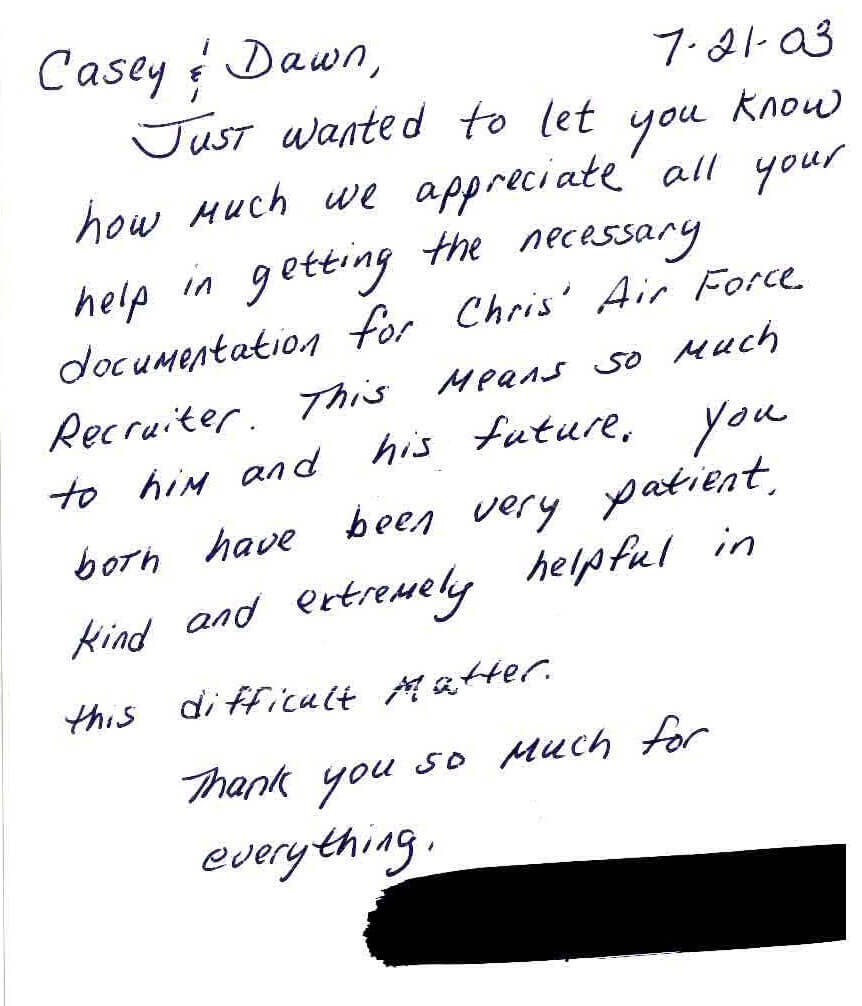 7-21-03
Casey & Dawn,
Just wanted to let you know
how much we appreciate all your
help in getting the necessary
documentation for Chris' Air Force
Recruiter. This means so much
to him and his future. You
both have been very patient,
kind and extremely helpful in
this difficult matter.
Thank you so much for
everything.